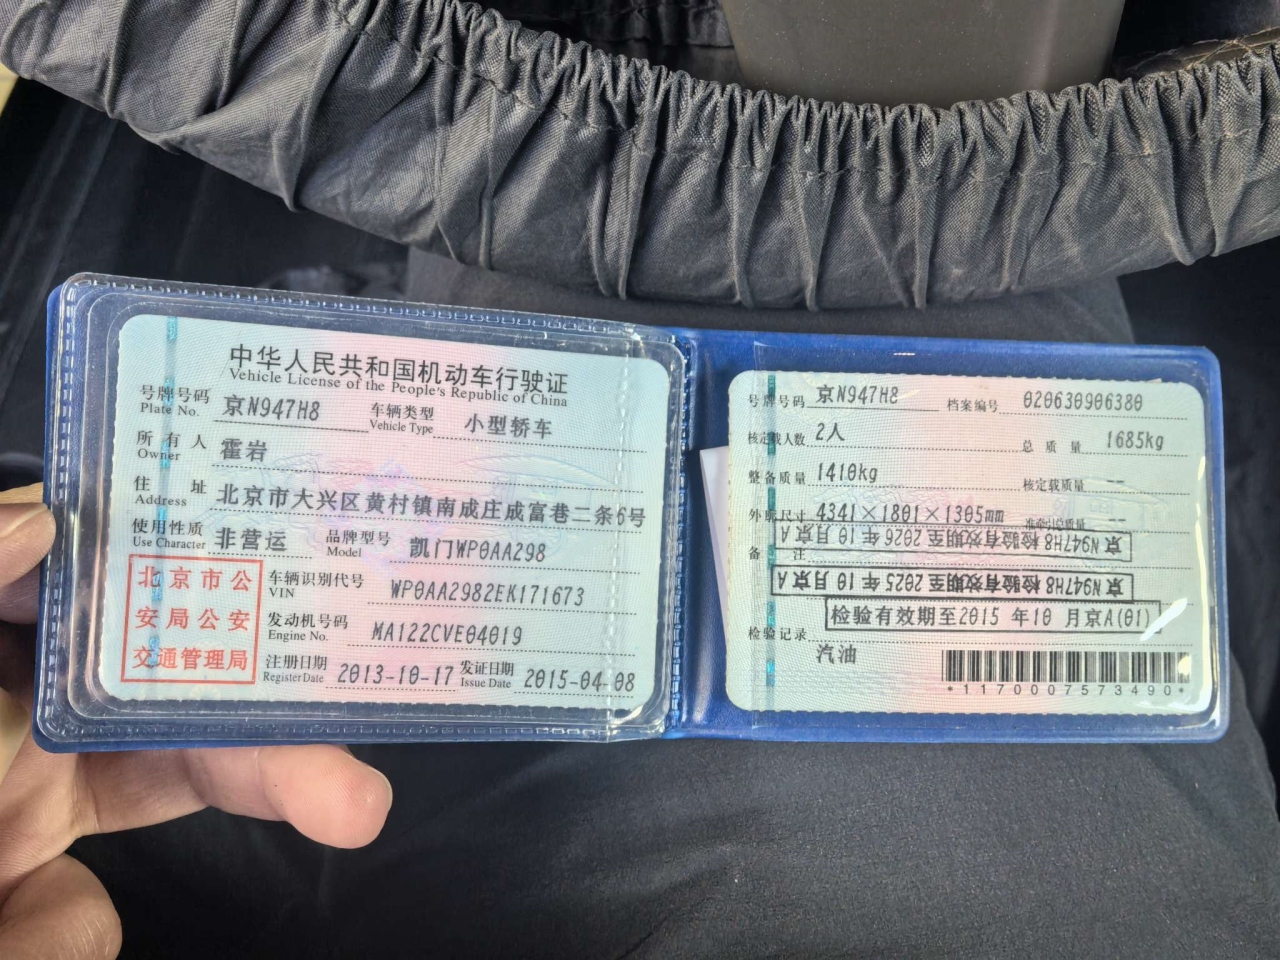 中华人民共和国机动车行驶证
Vehicle License of the People's Republic of China
号牌号码 京N947H8 车辆类型 小型轿车
Plate No. Vehicle Type
所有人 霍岩
Owner
住址 北京市大兴区黄村镇南成庄成富巷二条6号
Address
使用性质 非营运 品牌型号 凯门WP0AA298
Use Character Model
北京市公
安局公安
交通管理局
车辆识别代号 WP0AA2982EK171673
VIN
发动机号码 MA122CVE04019
Engine No.
注册日期 2013-10-17 发证日期 2015-04-08
Register Date Issue Date
号牌号码 京N947H8 档案编号 020630906380
核定载人数 2人 总质量 1685kg
整备质量 1410kg 核定载质量 --
外廓尺寸 4341×1801×1305mm 准牵引总质量 --
京N947H8 检验有效期至2026年10月京A
备注
京N947H8 检验有效期至2025年10月京A
检验有效期至2015年10月京A(01)
检验记录
汽油
*1170007573490*